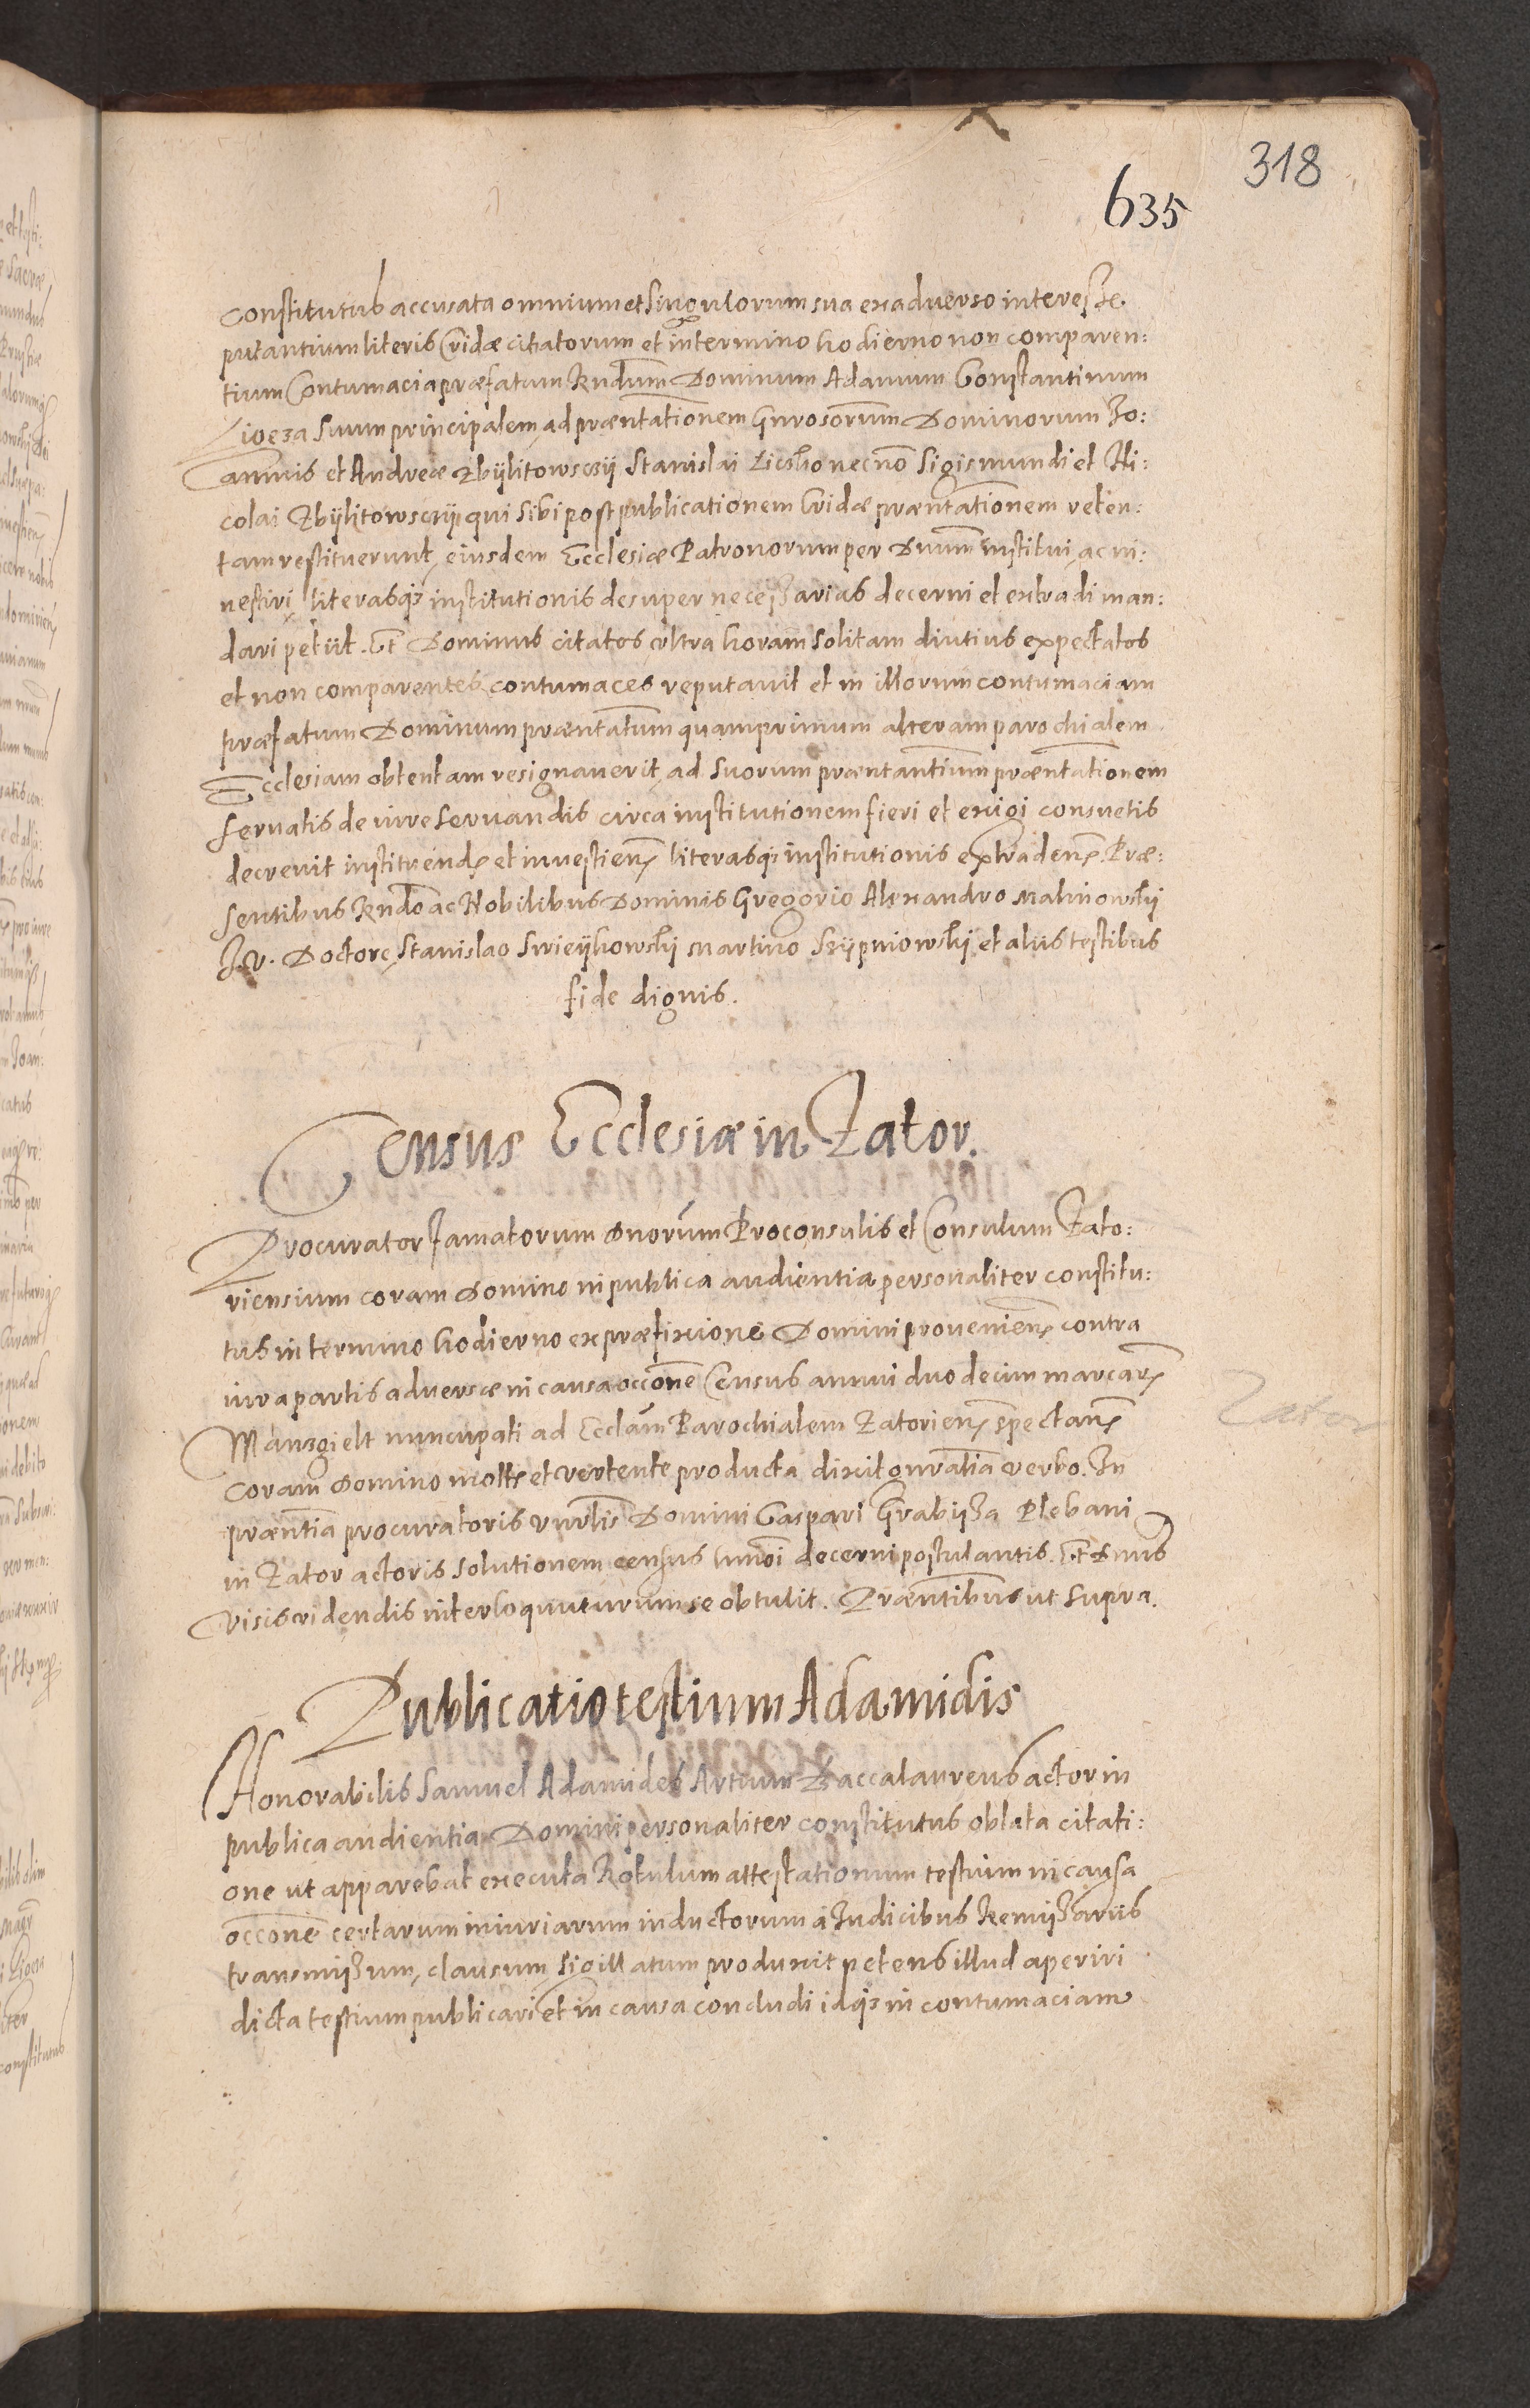 318
635
constitutus accusata omnium et singulorum sua ex adverso interesse
putantium literis Cridæ citatorum et in termino hodierno non comparen:
tium Contumacia præfatum Rndum Dominum Adamum Constantinum
Ligęza suum principalem, ad præntationem Gnrosorum Dominorum Jo:
annis et Andreæ Zbylitowsczy Stanislai Liesko necno Sigismundi et Ni:
colai Zbylitowsczy qui sibi post publicationem Cridæ præntationem reten:
tam restituerunt, eiusdem Ecclesiæ Patronorum per Dnum institui, ac in:
vestiri, literasqs institutionis desuper necessarias decerni et extradi man:
dari petiit. Et Dominus citatos ultra horam solitam diutius expectatos
et non comparentes, contumaces reputavit et in illorum contumaciam
præfatum Dominum præntatum quamprimum alteram parochialem
Ecclesiam obtentam resignaverit, ad suorum præntantium præntationem
servatis de iure servandis circa institutionem fieri et exigi consuetis
decrevit instituend et investien literasqs institutionis extraden. Præ:
sentibus Rndo ac Nobilibus Dominis Gregorio Alexandro Malinowski
J.V. Doctore, Stanislao Swieykowski Martino Skypniowski et aliis testibus
fide dignis.
Census Ecclesiæ in Zator.
Procurator famatorum Dnorum Proconsulis et Consulum Zato:
riensium coram Domino in publica audientia personaliter constitu:
tus in termino hodierno ex præfixione Domini provenien contra
iura partis adversæ in causa occone Census annui duodecim marcar
Manzgielt nuncupati ad Ecclam Parochialem Zatorien spectan
coram Domino mott et vertente producta dixit gnralia verbo. In
præntia procuratoris vnrlis Domini Gaspari Grabissa Plebani
in Zator actoris solutionem census hmoi decerni postulantis. Et Dnus
visis videndis interloquuturum se obtulit. Præntibus ut supra.
Zator
Publicatio testium Adamidis
Honorabilis Samuel Adamides Artium Baccalaureus actor in
publica audientia Domini personaliter constitutus oblata citati:
one ut apparebat executa Rotulum attestationum testium in causa
occone certarum iniuriarum inductorum a Judicibus Remissariis
transmissum, clausum, sigillatum produxit petens illud aperiri
dicta testium publicari et in causa concludi idqs in contumaciam